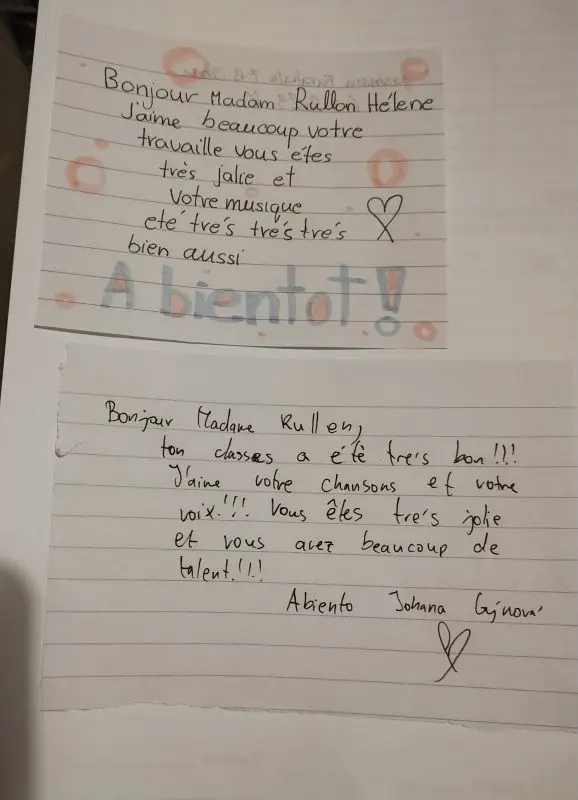 Bonjour Madam Rullon Hélene
J'aime beaucoup votre
travaille vous étes
très jalie et
Votre musique
eté trés trés trés
bien aussi
A bientot !
Bonjour Madame Rullen,
ton classes a étè trés bon!!!
J'aime votre chansons et votre
voix!!! Vous êtes trés jolie
et vous avez beaucoup de
talent!!!
Abiento Johana